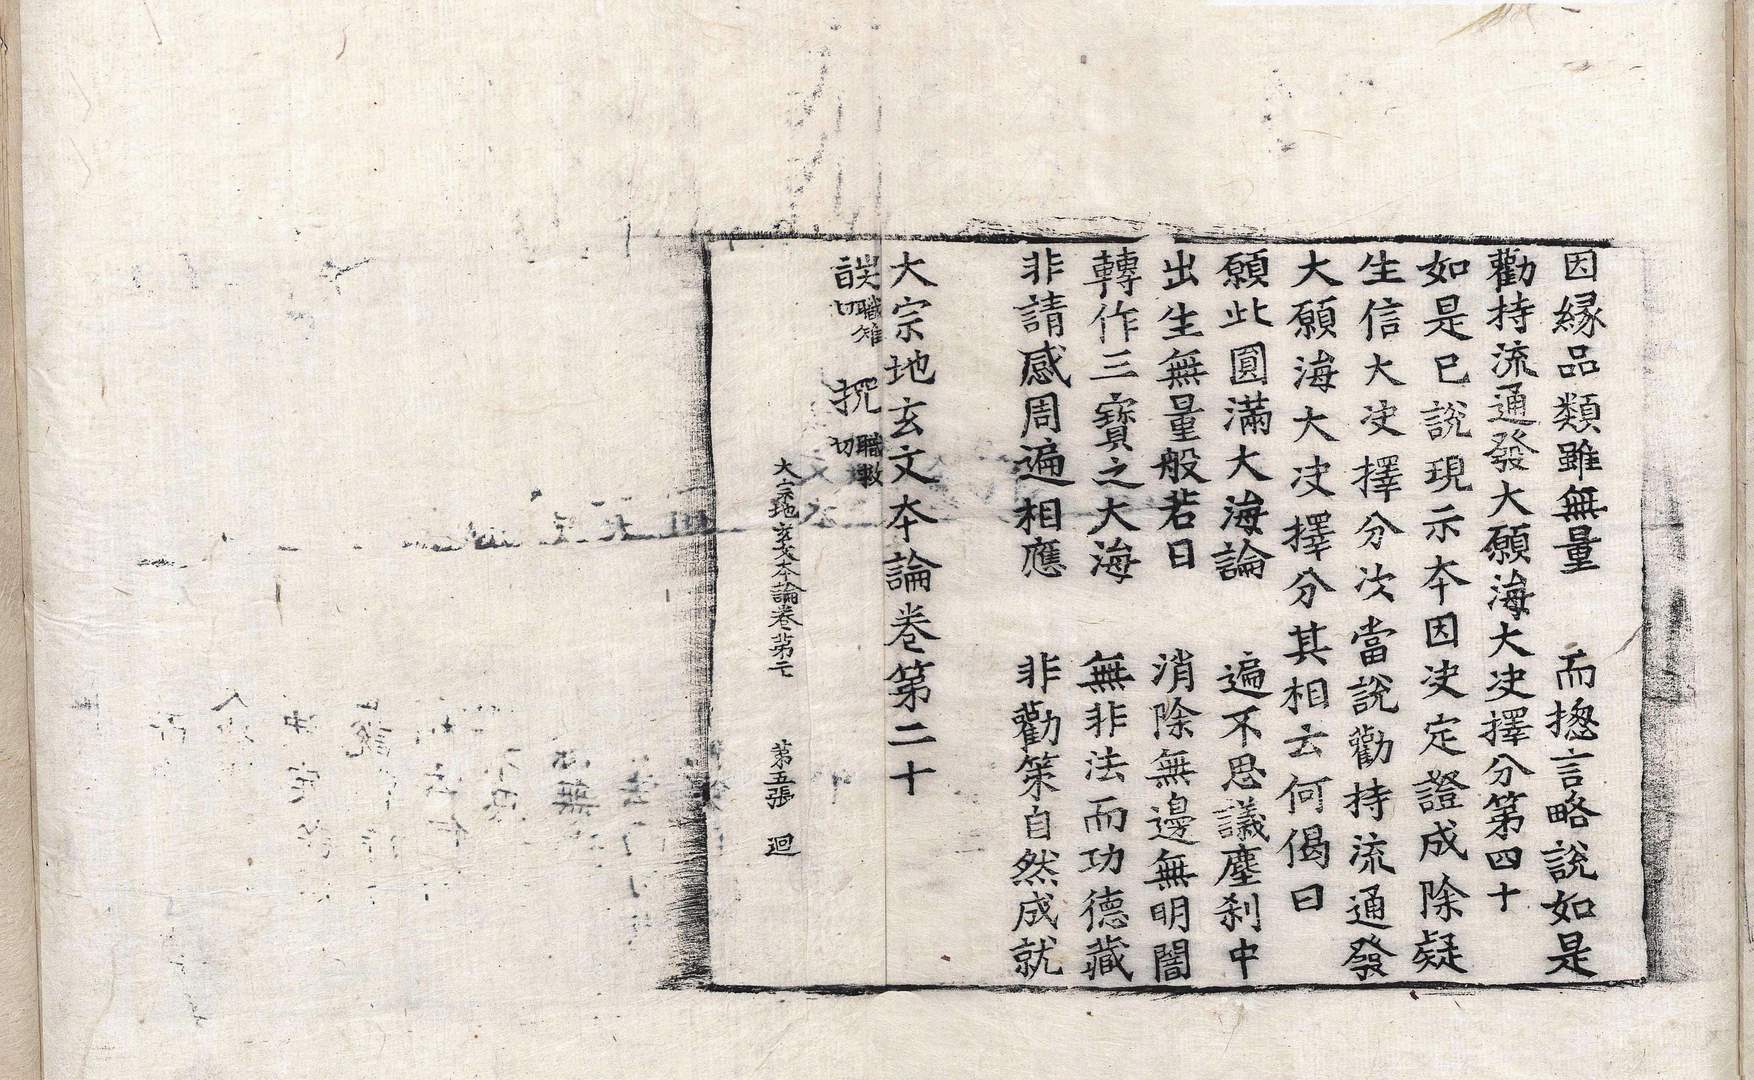 因縁品類雖無量　而摠言略說如是
勸持流通發大願海大决擇分第四十
如是已說現示本因决定證成除疑
生信大决擇分次當說勸持流通發
大願海大决擇分其相云何偈曰
願此圓滿大海論　遍不思議塵刹中
出生無量般若日　消除無邊無明闇
轉作三寶之大海　無非法而功德藏
非請感周遍相應　非勸策自然成就
大宗地玄文本論卷第二十
職雉切　職救切
大宗地玄文本論卷第二十　第五張　迴